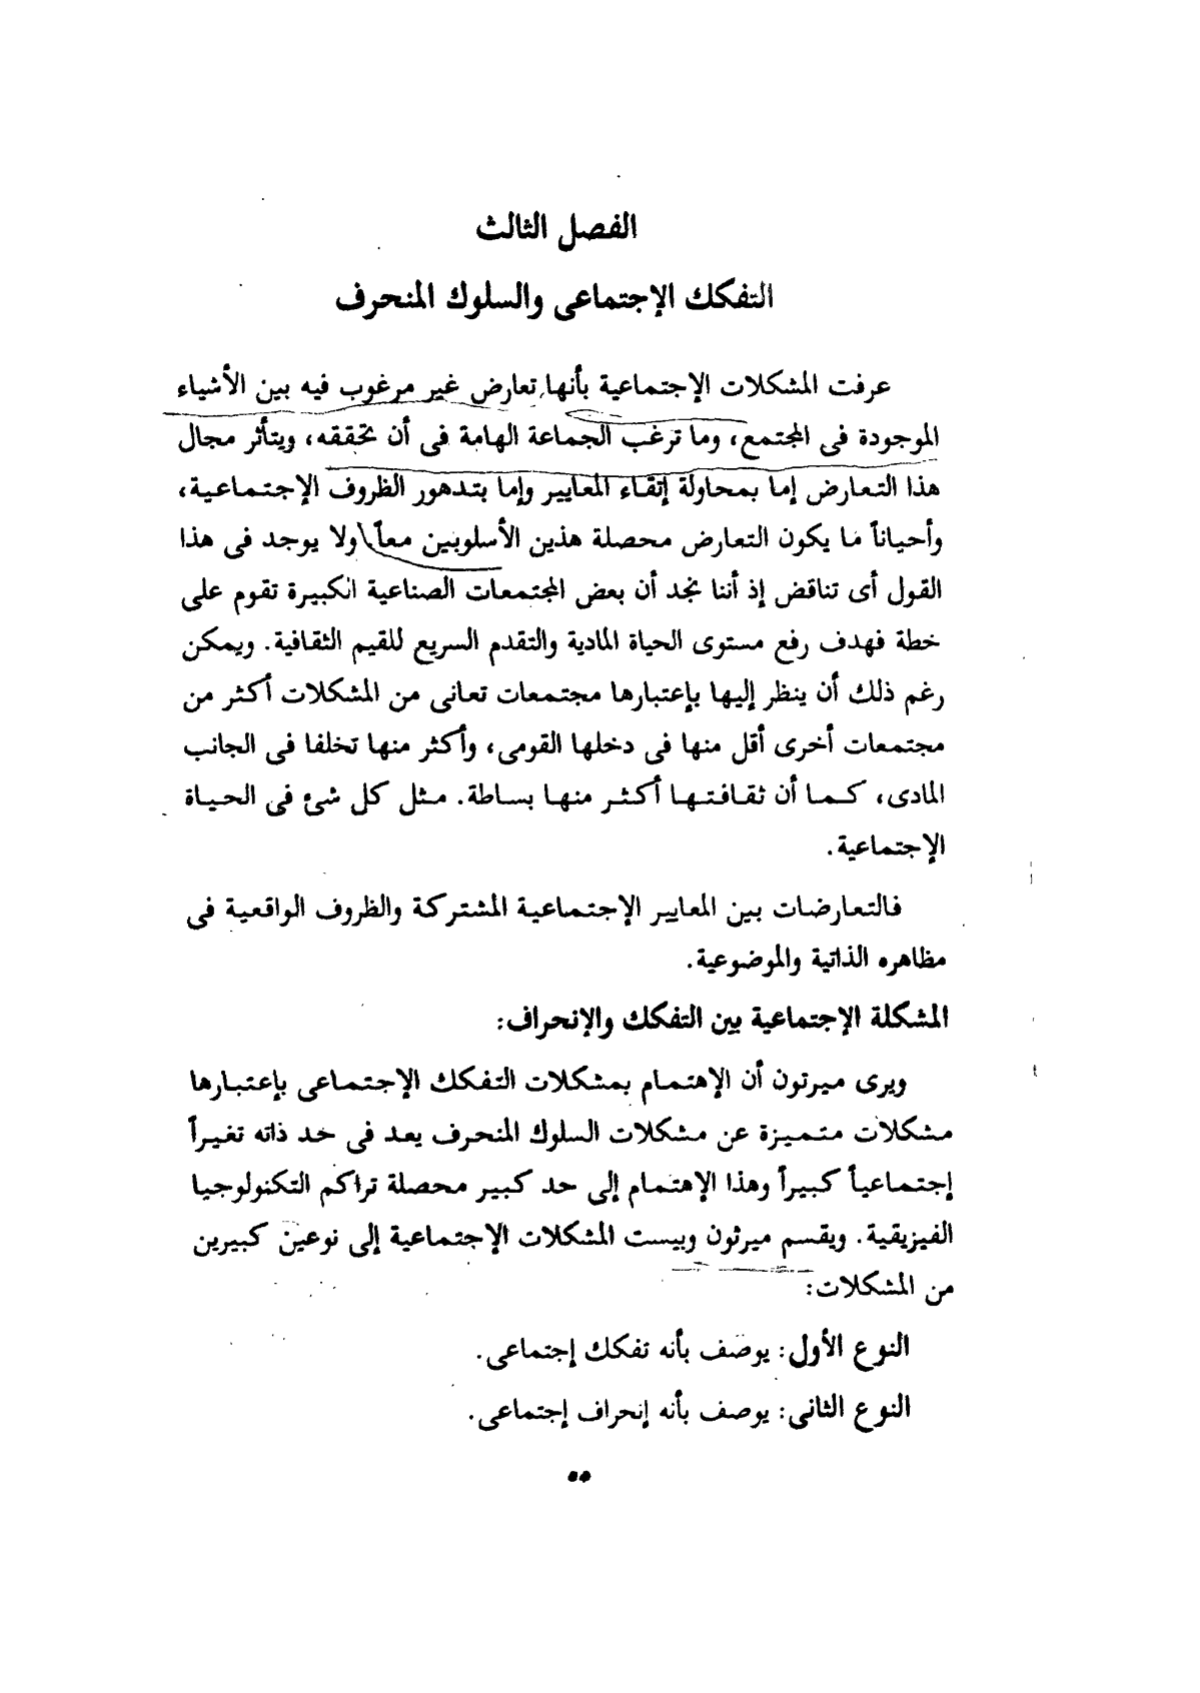 الفصل الثالث
التفكك الإجتماعى والسلوك المنحرف
عرفت المشكلات الإجتماعية بأنها تعارض غير مرغوب فيه بين الأشياء
الموجودة فى المجتمع، وما ترغب الجماعة الهامة فى أن تحققه، ويتأثر مجال
هذا التعارض إما بمحاولة إتقاء المعايير وإما بتدهور الظروف الإجتماعية،
وأحياناً ما يكون التعارض محصلة هذين الأسلوبين معاً ولا يوجد فى هذا
القول أى تناقض إذ أننا نجد أن بعض المجتمعات الصناعية الكبيرة تقوم على
خطة فهدف رفع مستوى الحياة المادية والتقدم السريع للقيم الثقافية. ويمكن
رغم ذلك أن ينظر إليها بإعتبارها مجتمعات تعانى من المشكلات أكثر من
مجتمعات أخرى أقل منها فى دخلها القومى، وأكثر منها تخلفا فى الجانب
المادى، كما أن ثقافتها أكثر منها بساطة. مثل كل شئ فى الحياة
الإجتماعية.
فالتعارضات بين المعايير الإجتماعية المشتركة والظروف الواقعية فى
مظاهره الذاتية والموضوعية.
المشكلة الإجتماعية بين التفكك والإنحراف:
ويرى ميرتون أن الإهتمام بمشكلات التفكك الإجتماعى بإعتبارها
مشكلات متميزة عن مشكلات السلوك المنحرف يعد فى حد ذاته تغيراً
إجتماعياً كبيراً وهذا الإهتمام إلى حد كبير محصلة تراكم التكنولوجيا
الفيزيقية. ويقسم ميرثون وبيست المشكلات الإجتماعية إلى نوعين كبيرين
من المشكلات:
النوع الأول: يوصف بأنه تفكك إجتماعى.
النوع الثانى: يوصف بأنه إنحراف إجتماعى.
٥٥